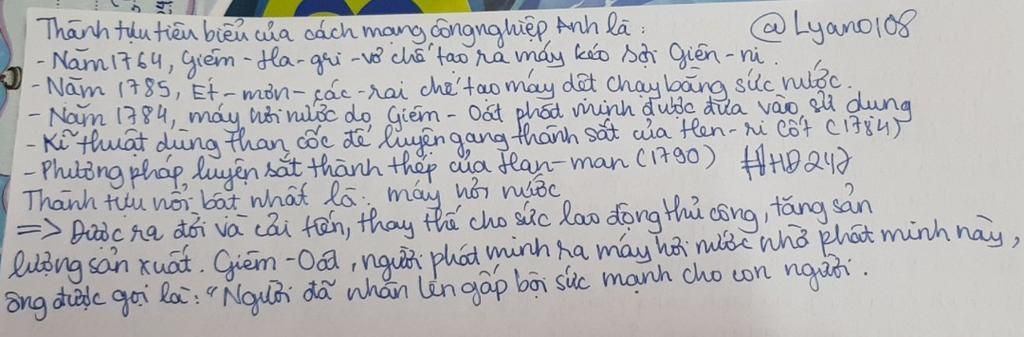 Thành tựu tiêu biểu của cách mạng công nghiệp Anh là: @Lyano108
- Năm 1764, Giêm-Ha-gri-vơ chế tạo ra máy kéo sợi Gien-ni.
- Năm 1785, Ét-mơn-các-rai chế tạo máy dệt chạy bằng sức nước.
- Năm 1784, máy hơi nước do Giêm-Oát phát minh được đưa vào sử dụng
- Kĩ thuật dùng than cốc để luyện gang thành sắt của Hen-ri Cốt (1784)
- Phương pháp luyện sắt thành thép của Han-man (1790) #HD247
Thành tựu nổi bật nhất là: máy hơi nước
=> Được ra đời và cải tiến, thay thế cho sức lao động thủ công, tăng sản
lượng sản xuất. Giêm-Oát, người phát minh ra máy hơi nước nhờ phát minh này,
ông được gọi là: "Người đã nhân lên gấp bội sức mạnh cho con người.